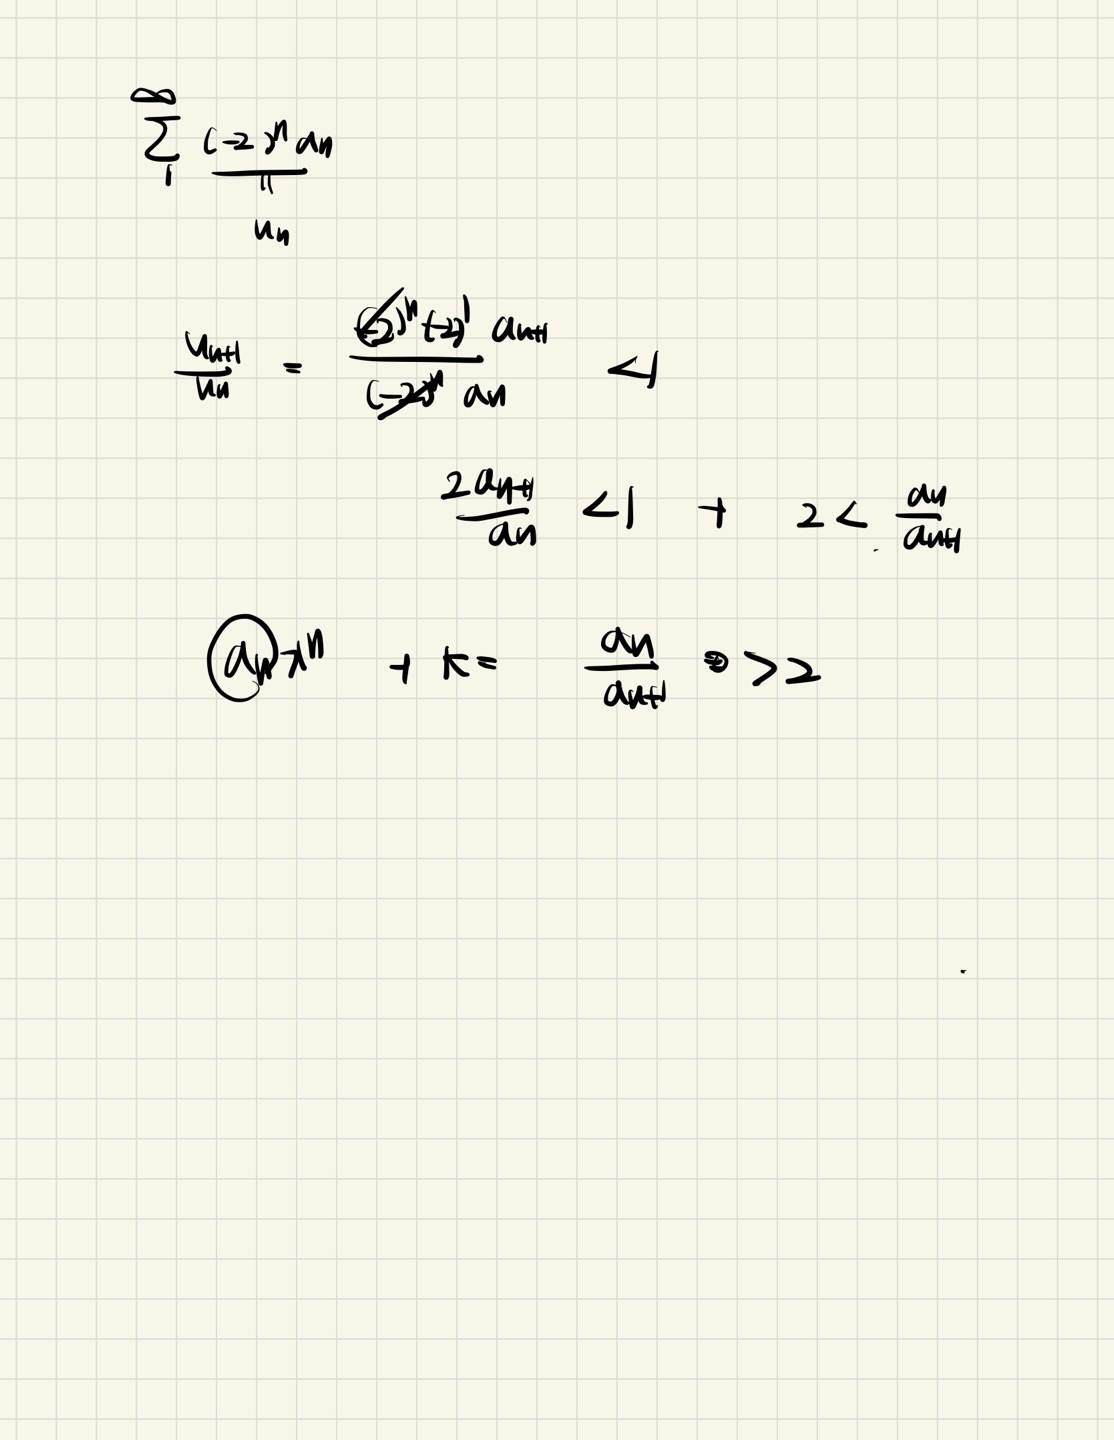 ∞
Σ (-2)ⁿ aₙ
1 ‖
uₙ
uₙ₊₁/uₙ = (-2)ⁿ(-2)¹ aₙ₊₁ / (-2)ⁿ aₙ < 1
2aₙ₊₁/aₙ < 1 → 2 < aₙ/aₙ₊₁
aₙxⁿ → R = aₙ/aₙ₊₁ > 2